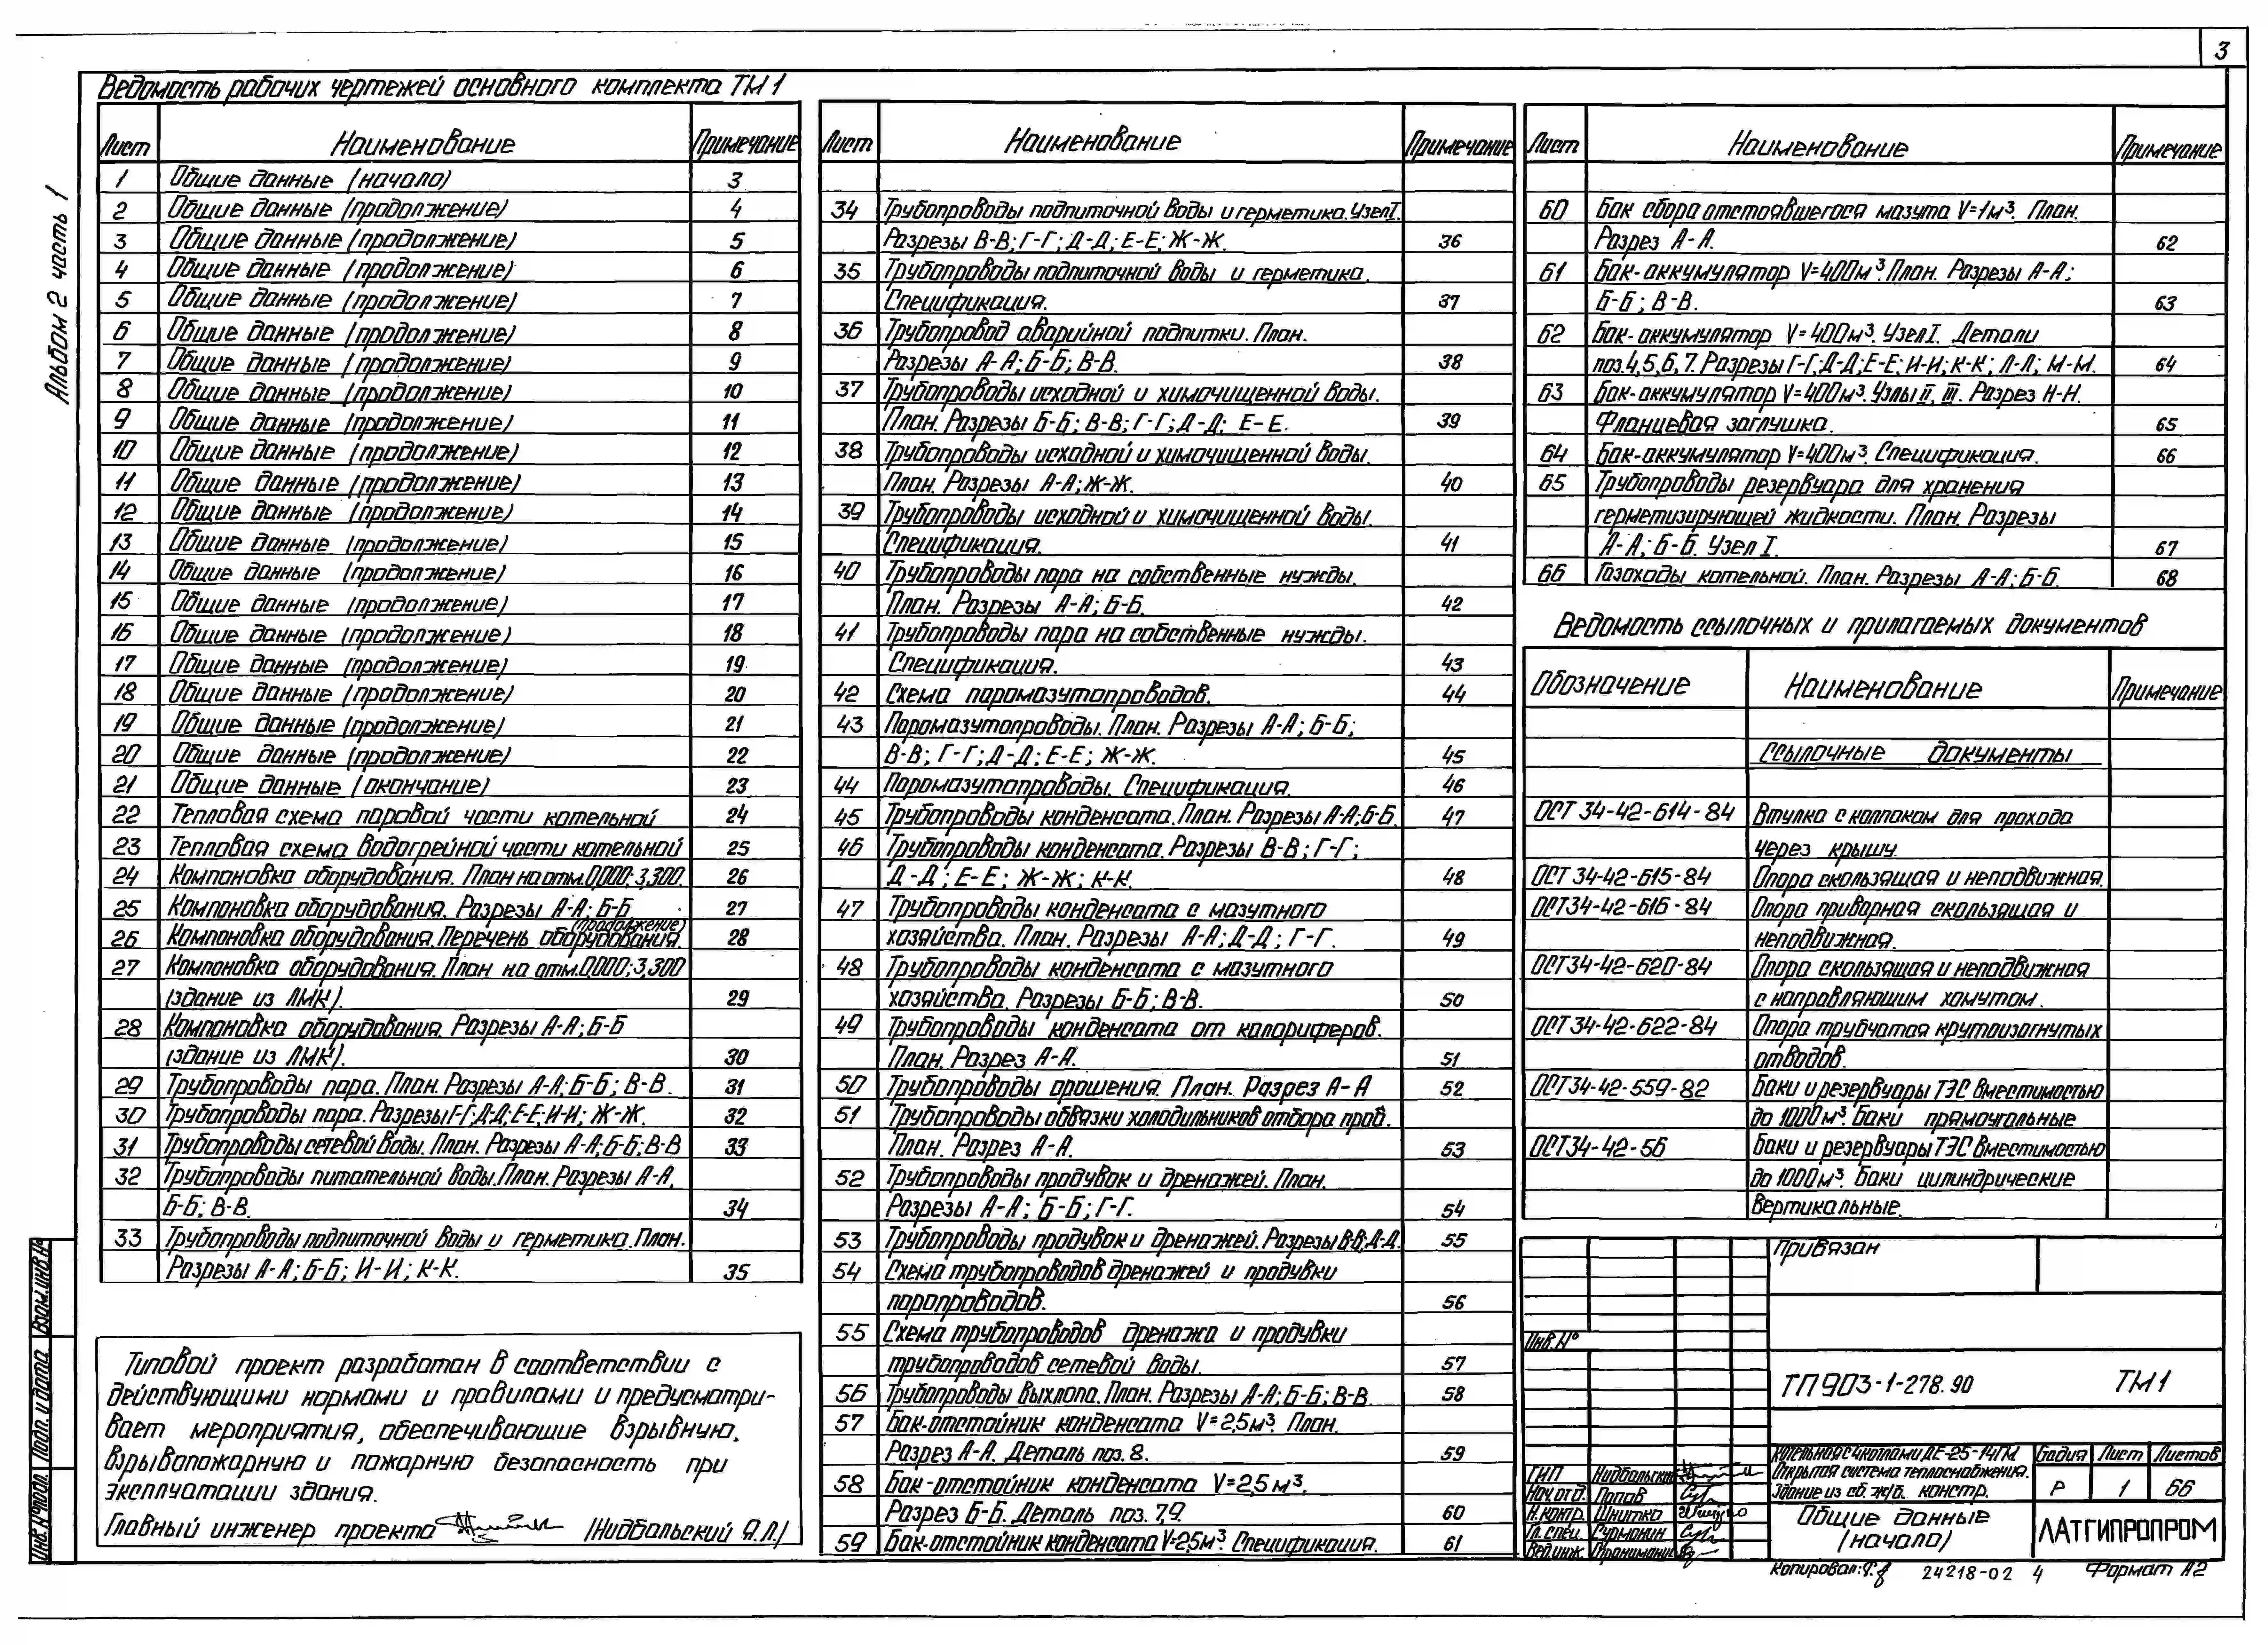 3
Альбом 2 часть 1
Ведомость рабочих чертежей основного комплекта ТМ1
Лист Наименование Примечание
1 Общие данные (начало) 3
2 Общие данные (продолжение) 4
3 Общие данные (продолжение) 5
4 Общие данные (продолжение) 6
5 Общие данные (продолжение) 7
6 Общие данные (продолжение) 8
7 Общие данные (продолжение) 9
8 Общие данные (продолжение) 10
9 Общие данные (продолжение) 11
10 Общие данные (продолжение) 12
11 Общие данные (продолжение) 13
12 Общие данные (продолжение) 14
13 Общие данные (продолжение) 15
14 Общие данные (продолжение) 16
15 Общие данные (продолжение) 17
16 Общие данные (продолжение) 18
17 Общие данные (продолжение) 19
18 Общие данные (продолжение) 20
19 Общие данные (продолжение) 21
20 Общие данные (продолжение) 22
21 Общие данные (окончание) 23
22 Тепловая схема паровой части котельной 24
23 Тепловая схема водогрейной части котельной 25
24 Компановка оборудования. План на отм. 0,000; 3,300. 26
25 Компоновка оборудования. Разрезы А-А; Б-Б 27
(продолжение)
26 Компановка оборудования. Перечень оборудования. 28
27 Компоновка оборудования. План на отм. 0,000; 3,300
(здание из ЛМК). 29
28 Компановка оборудования. Разрезы А-А; Б-Б
(здание из ЛМК). 30
29 Трубопроводы пара. План. Разрезы А-А; Б-Б; В-В. 31
30 Трубопроводы пара. Разрезы Г-Г; Д-Д; Е-Е; И-И; Ж-Ж. 32
31 Трубопроводы сетевой воды. План. Разрезы А-А; Б-Б; В-В 33
32 Трубопроводы питательной воды. План. Разрезы А-А,
Б-Б; В-В. 34
33 Трубопроводы подпиточной воды и герметика. План.
Разрезы А-А; Б-Б; И-И; К-К. 35
Типовой проект разработан в соответствии с
действующими нормами и правилами и предусматри-
вает мероприятия, обеспечивающие взрывную,
взрывопожарную и пожарную безопасность при
эксплуатации здания.
Главный инженер проекта /Нидбальский Я.Л./
Лист Наименование Примечание
34 Трубопроводы подпиточной воды и герметика. Узел I.
Разрезы В-В; Г-Г; Д-Д; Е-Е; Ж-Ж. 36
35 Трубопроводы подпиточной воды и герметика.
Спецификация. 37
36 Трубопровод аварийной подпитки. План.
Разрезы А-А; Б-Б; В-В. 38
37 Трубопроводы исходной и химочищенной воды.
План. Разрезы Б-Б; В-В; Г-Г; Д-Д; Е-Е. 39
38 Трубопроводы исходной и химочищенной воды.
План. Разрезы А-А; Ж-Ж. 40
39 Трубопроводы исходной и химочищенной воды.
Спецификация. 41
40 Трубопроводы пара на собственные нужды.
План. Разрезы А-А; Б-Б. 42
41 Трубопроводы пара на собственные нужды.
Спецификация. 43
42 Схема паромазутопроводов. 44
43 Паромазутопроводы. План. Разрезы А-А; Б-Б;
В-В; Г-Г; Д-Д; Е-Е; Ж-Ж. 45
44 Паромазутопроводы. Спецификация. 46
45 Трубопроводы конденсата. План. Разрезы А-А; Б-Б. 47
46 Трубопроводы конденсата. Разрезы В-В; Г-Г;
Д-Д; Е-Е; Ж-Ж; К-К. 48
47 Трубопроводы конденсата с мазутного
хозяйства. План. Разрезы А-А; Д-Д; Г-Г. 49
48 Трубопроводы конденсата с мазутного
хозяйства. Разрезы Б-Б; В-В. 50
49 Трубопроводы конденсата от калориферов.
План. Разрез А-А. 51
50 Трубопроводы орошения. План. Разрез А-А 52
51 Трубопроводы обвязки холодильников отбора проб.
План. Разрез А-А. 53
52 Трубопроводы продувок и дренажей. План.
Разрезы А-А; Б-Б; Г-Г. 54
53 Трубопроводы продувок и дренажей. Разрезы В-В; Д-Д. 55
54 Схема трубопроводов дренажей и продувки
паропроводов. 56
55 Схема трубопроводов дренажа и продувки
трубопроводов сетевой воды. 57
56 Трубопроводы выхлопа. План. Разрезы А-А; Б-Б; В-В. 58
57 Бак-отстойник конденсата V=2,5м³. План.
Разрез А-А. Деталь поз. 8. 59
58 Бак-отстойник конденсата V=2,5м³.
Разрез Б-Б. Деталь поз. 7,9. 60
59 Бак-отстойник конденсата V=2,5м³. Спецификация. 61
Лист Наименование Примечание
60 Бак сбора отстоявшегося мазута V=1м³. План.
Разрез А-А. 62
61 Бак-аккумулятор V=400м³. План. Разрезы А-А;
Б-Б; В-В. 63
62 Бак-аккумулятор V=400м³. Узел I. Детали
поз. 4,5,6,7. Разрезы Г-Г; Д-Д; Е-Е; И-И; К-К; Л-Л; М-М. 64
63 Бак-аккумулятор V=400м³. Узлы II, III. Разрез Н-Н.
Фланцевая заглушка. 65
64 Бак-аккумулятор V=400м³. Спецификация. 66
65 Трубопроводы резервуара для хранения
герметизирующей жидкости. План. Разрезы
А-А; Б-Б. Узел I. 67
66 Газоходы котельной. План. Разрезы А-А; Б-Б. 68
Ведомость ссылочных и прилагаемых документов
Обозначение Наименование Примечание
Ссылочные документы
ОСТ 34-42-614-84 Втулка с колпаком для прохода
через крышу.
ОСТ 34-42-615-84 Опора скользящая и неподвижная.
ОСТ 34-42-616-84 Опора приварная скользящая и
неподвижная.
ОСТ 34-42-620-84 Опора скользящая и неподвижная
с направляющим хомутом.
ОСТ 34-42-622-84 Опора трубчатая крутоизогнутых
отводов.
ОСТ 34-42-559-82 Баки и резервуары ТЭС вместимостью
до 1000м³. Баки прямоугольные
ОСТ 34-42-56 Баки и резервуары ТЭС вместимостью
до 1000м³. Баки цилиндрические
вертикальные.
Привязан
Инв.№
ТП 903-1-278.90 ТМ1
Котельная с 4 котлами ДЕ-25-14ГМ.
Открытая система теплоснабжения.
Здание из сб. ж/б. констр.
Стадия Лист Листов
Р 1 66
ГИП Нидбальский
Нач.отд. Попов
Н.контр. Шнитко
Гл.спец. Сурманин
Вед.инж.
Общие данные
(начало)
ЛАТГИПРОПРОМ
Копировал: 24218-02 4 Формат А2
Взам.инв.№
Подп. и дата
Инв.№подл.